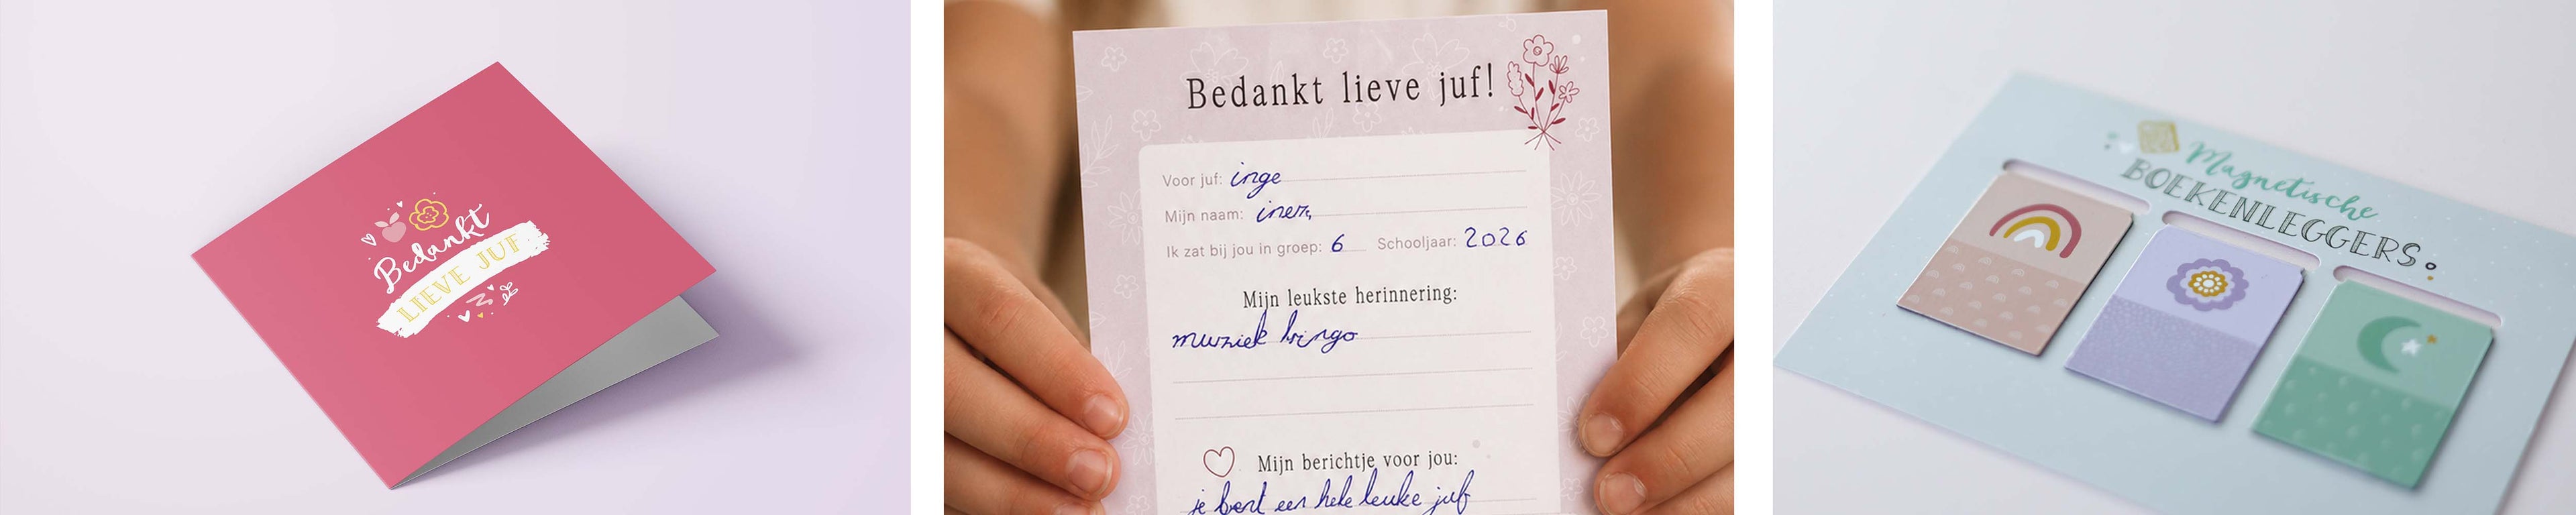 Bedankt
LIEVE JUF
Bedankt lieve juf!
Voor juf: inge
Mijn naam:
Ik zat bij jou in groep: 6 Schooljaar: 2026
Mijn leukste herinnering:
muziek bingo
Mijn berichtje voor jou:
je bent een hele leuke juf
Magnetische
BOEKENLEGGERS